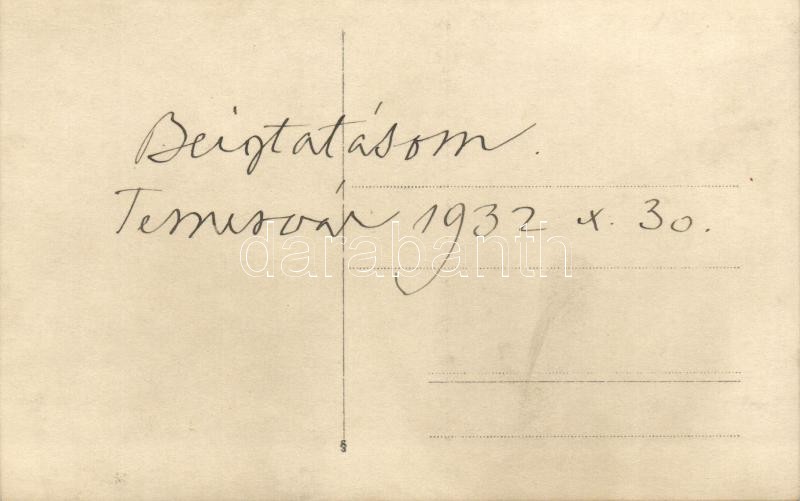 Beigtatásom.
Temesvár 1932 x. 30.
darabanth
§